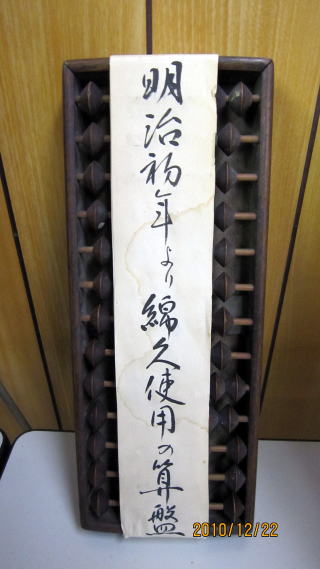 明治初年より綿久使用の算盤
2010/12/22